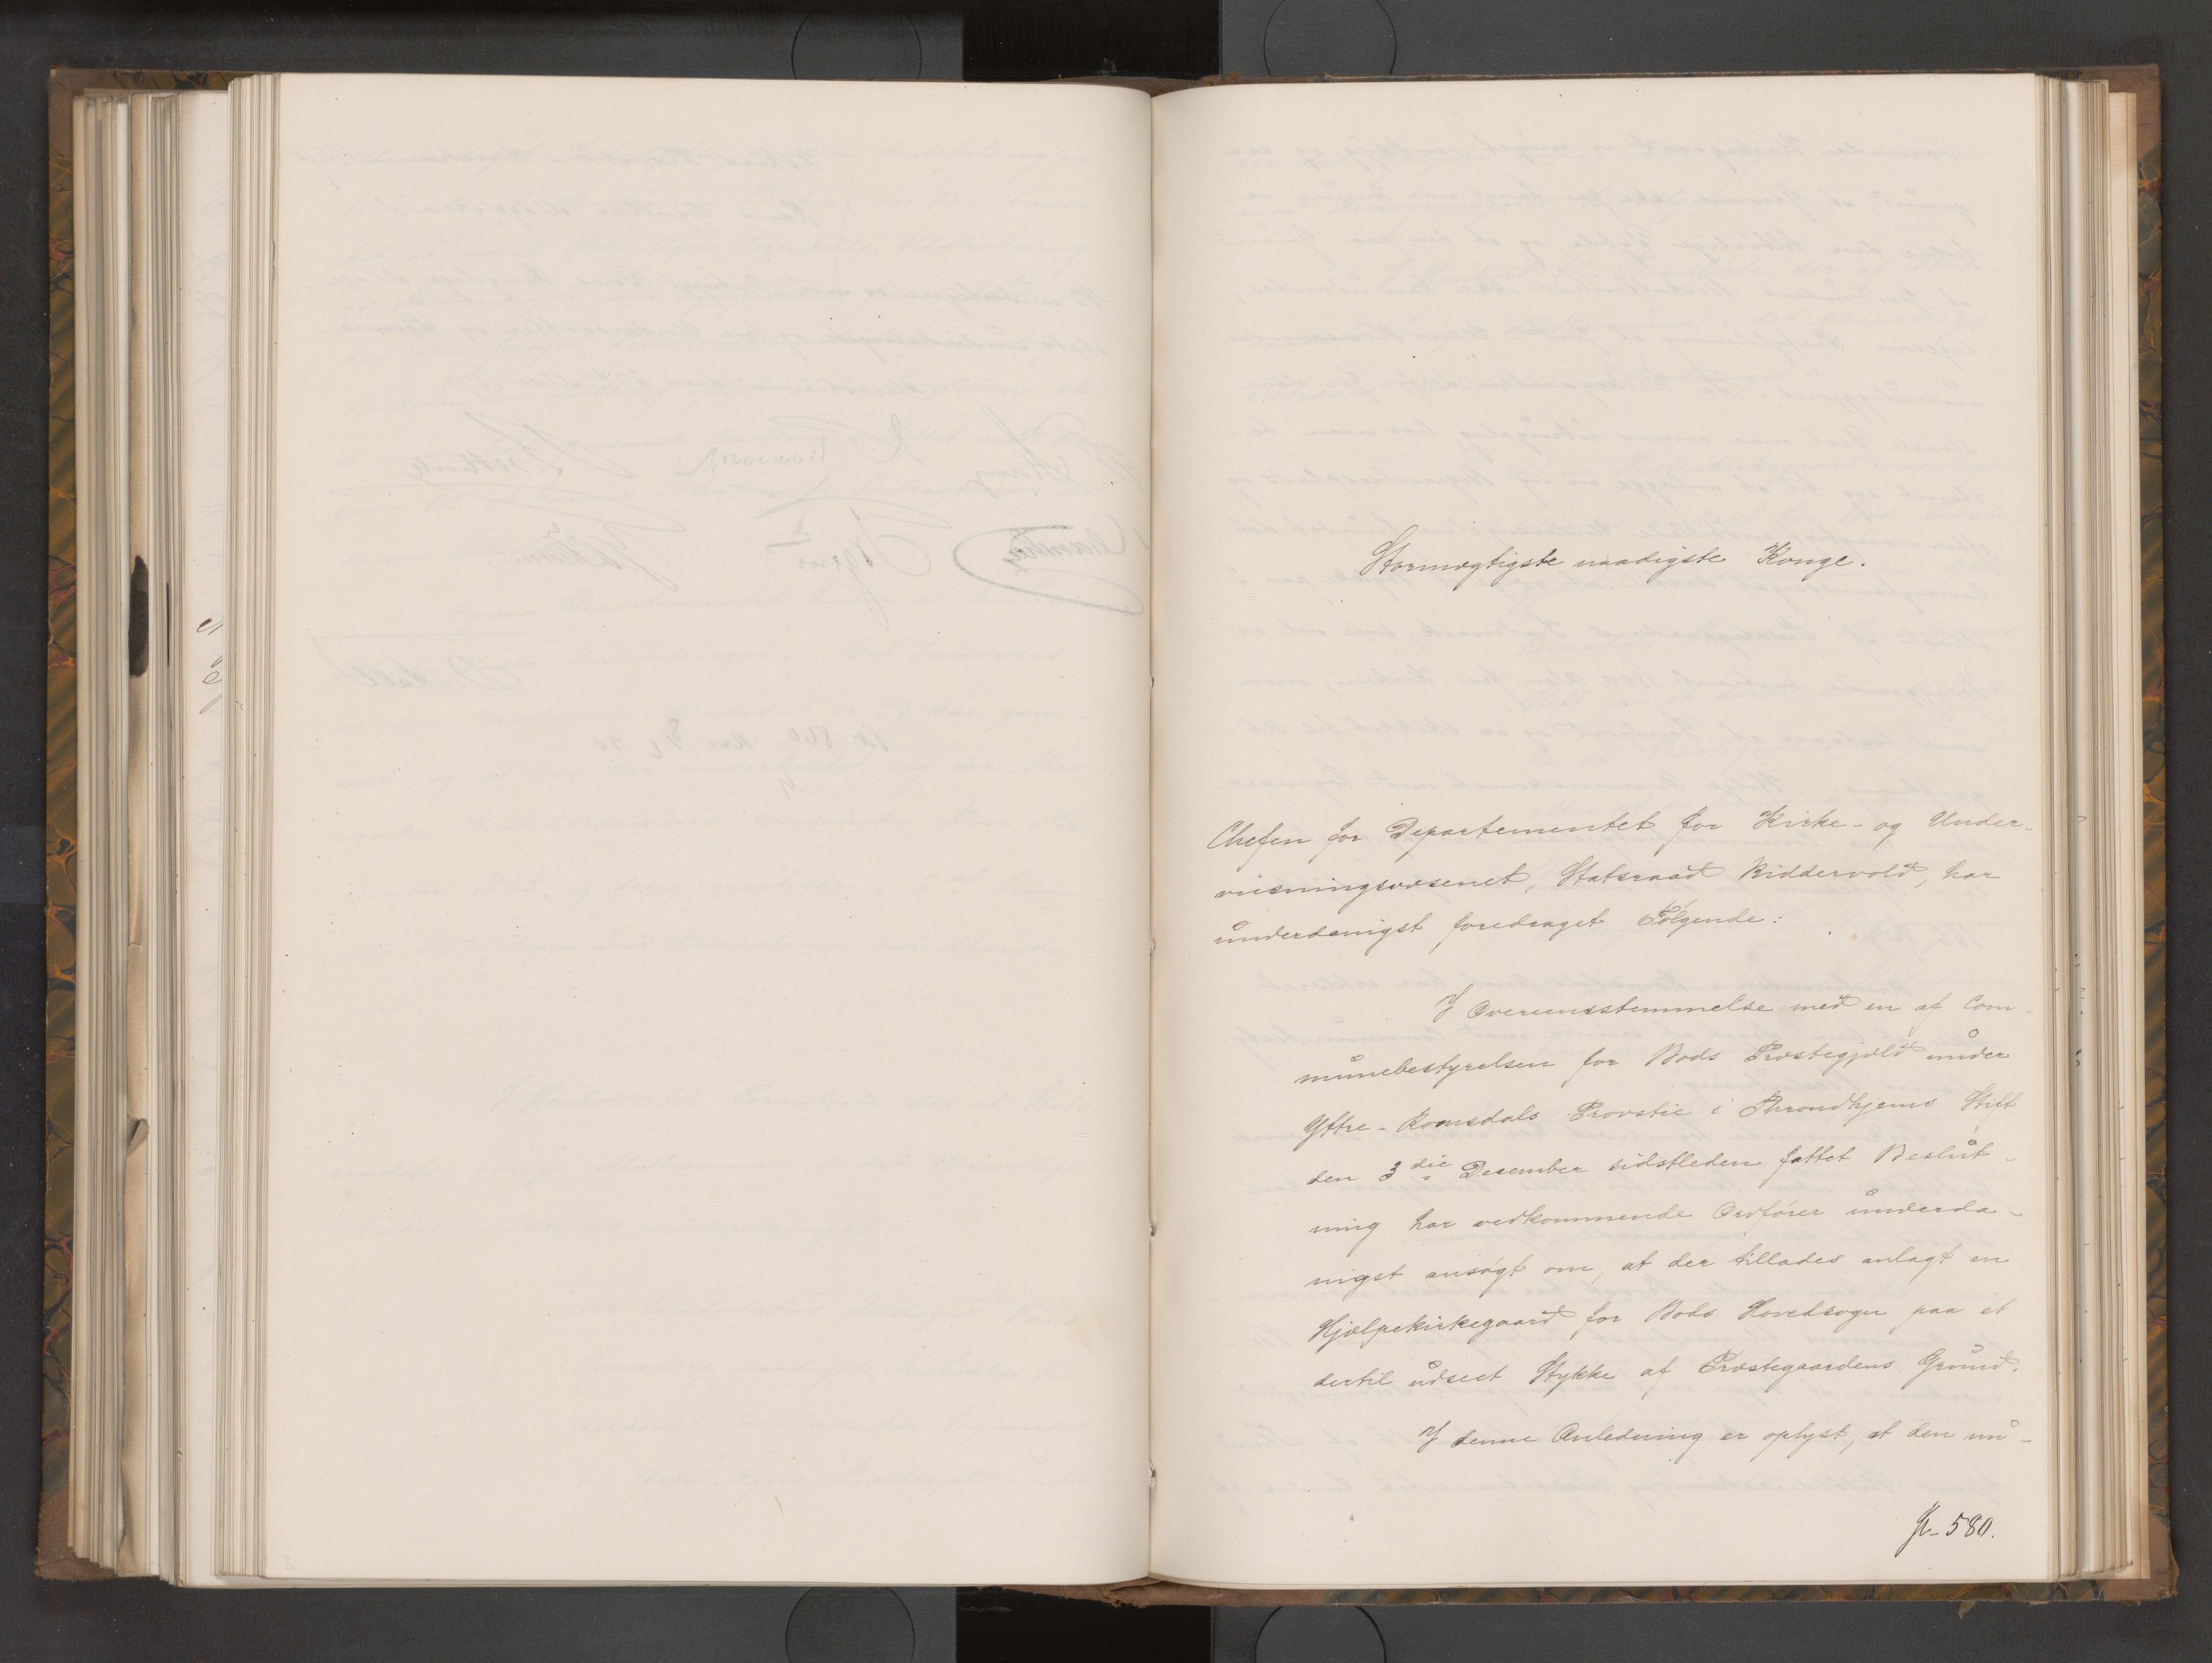 Stormægtigste naadigste Konge.
Chefen for Departementet for Kirke- og Under-
viisningsvæsenet, Statsraad Riddervold, har
underdanigst foredraget Følgende:
I Overeensstemmelse med en af Com-
munebestyrelsen for Bods Præstegjæld under
Yttre-Romsdals Provstie i Throndhjems Stift
den 3die December sidstleden fattet Beslut-
ning har vedkommende Ordfører underda-
nigst ansøgt om, at der tillades anlagt en
Hjælpekirkegaard for Bods Hovedsogn paa et
dertil udseet Stykke af Præstegaardens Grund.
I denne Anledning er oplyst, at den nu-
580.